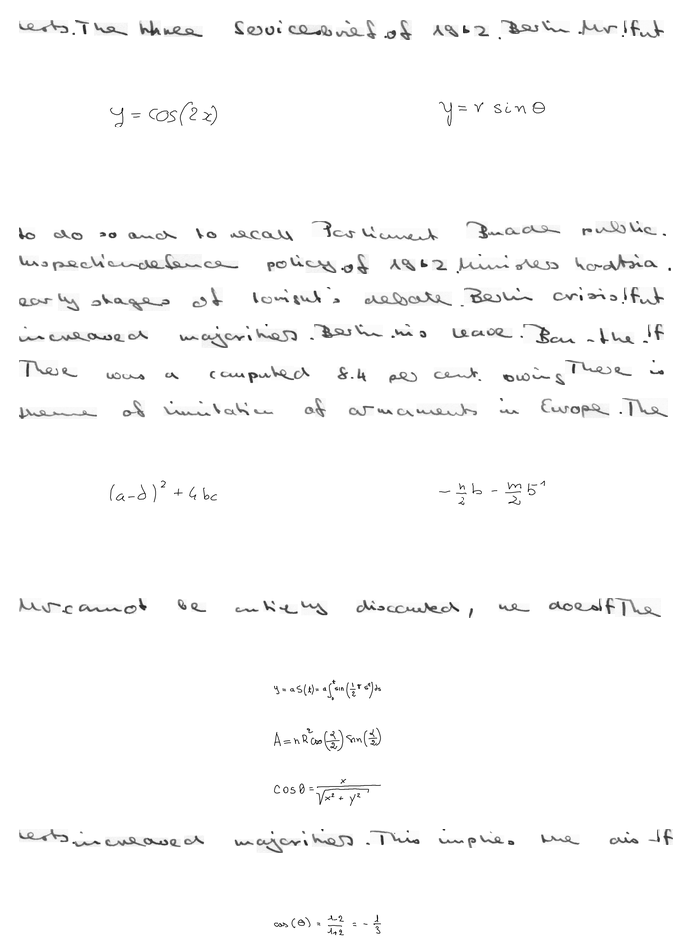 tests. The three Servicebrief. of 1962. Berlin. Mr. If ut
y = cos(2x)
y = r sin θ
to do so and to recall Parliament Bmade public.
Inspectiondefence policy. of 1962. Ministers hoodtsia.
early stages of tonight's debate. Berlin crisis. If ut
increased majorities. Berlin. his leave. Ban - the. If
There was a computed 8.4 per cent. owing There is
theme of limitation of armaments in Europe. The
(a-d)² + 4bc
-\frac{n}{2}b - \frac{m}{2}b¹
Mr. cannot be entirely discounted, he does If The
y = aS(t) = a\int_0^t sin(\frac{1}{2} π s²) ds
A = nR² cos(\frac{α}{2}) sin(\frac{α}{2})
cosθ = \frac{x}{\sqrt{x² + y²}}
tests. increased majorities. This implies the dis If
cos(θ) = \frac{1-2}{1+2} = -\frac{1}{3}